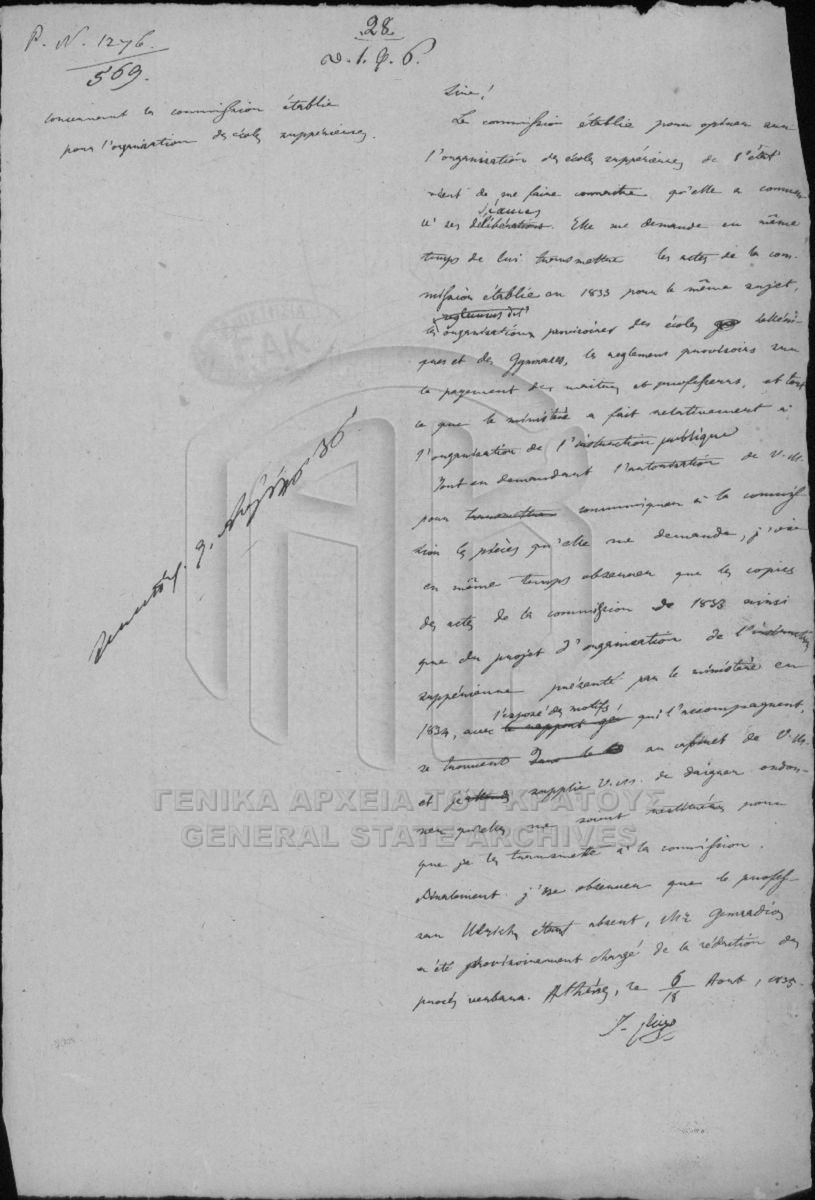 28
P. N. 1276.
569.
concernant la commission établie
pour l'organisation des écoles suppérieures.
Sire!
La commission établie pour opiner sur
l'organisation des écoles suppérieures de l'état
vient de me faire connaitre qu'elle a commen-
séances
cé ses délibérations. Elle me demande en même
temps de lui transmettre les actes de la com-
mission établie en 1833 pour le même sujet,
les organisations provisoires des écoles helléni-
ques et des Gymnases, les reglemens provisoirs sur
le payement des maitres et professeurs, et tout
ce que le ministère a fait relativement à
l'organisation de l'instruction publique
Tout en demandant l'autorisation de V. M.
pour transmettre communiquer à la commis-
sion les pièces qu'elle me demande, j'ose
en même temps observer que les copies
des actes de la commission de 1833 ainsi
que du projet d'organisation de l'instruction
suppérieure présenté par le ministère en
l'exposé des motifs
1834, avec le rapport qui l'accompagnent,
se trouvent dans le au cabinet de V. M.
et je supplie V. M. de daigner ordon-
ner qu'elles me soient restituées pour
que je les transmette à la commission.
Finalement j'ose observer que le profes-
seur Ulrichs étant absent, Mr Gennadios
a été provisoirement chargé de la rédaction des
procés verbaux. Athénes, ce 6/18 Aout, 1835.
ΓΕΝΙΚΑ ΑΡΧΕΙΑ ΤΟΥ ΚΡΑΤΟΥΣ
GENERAL STATE ARCHIVES